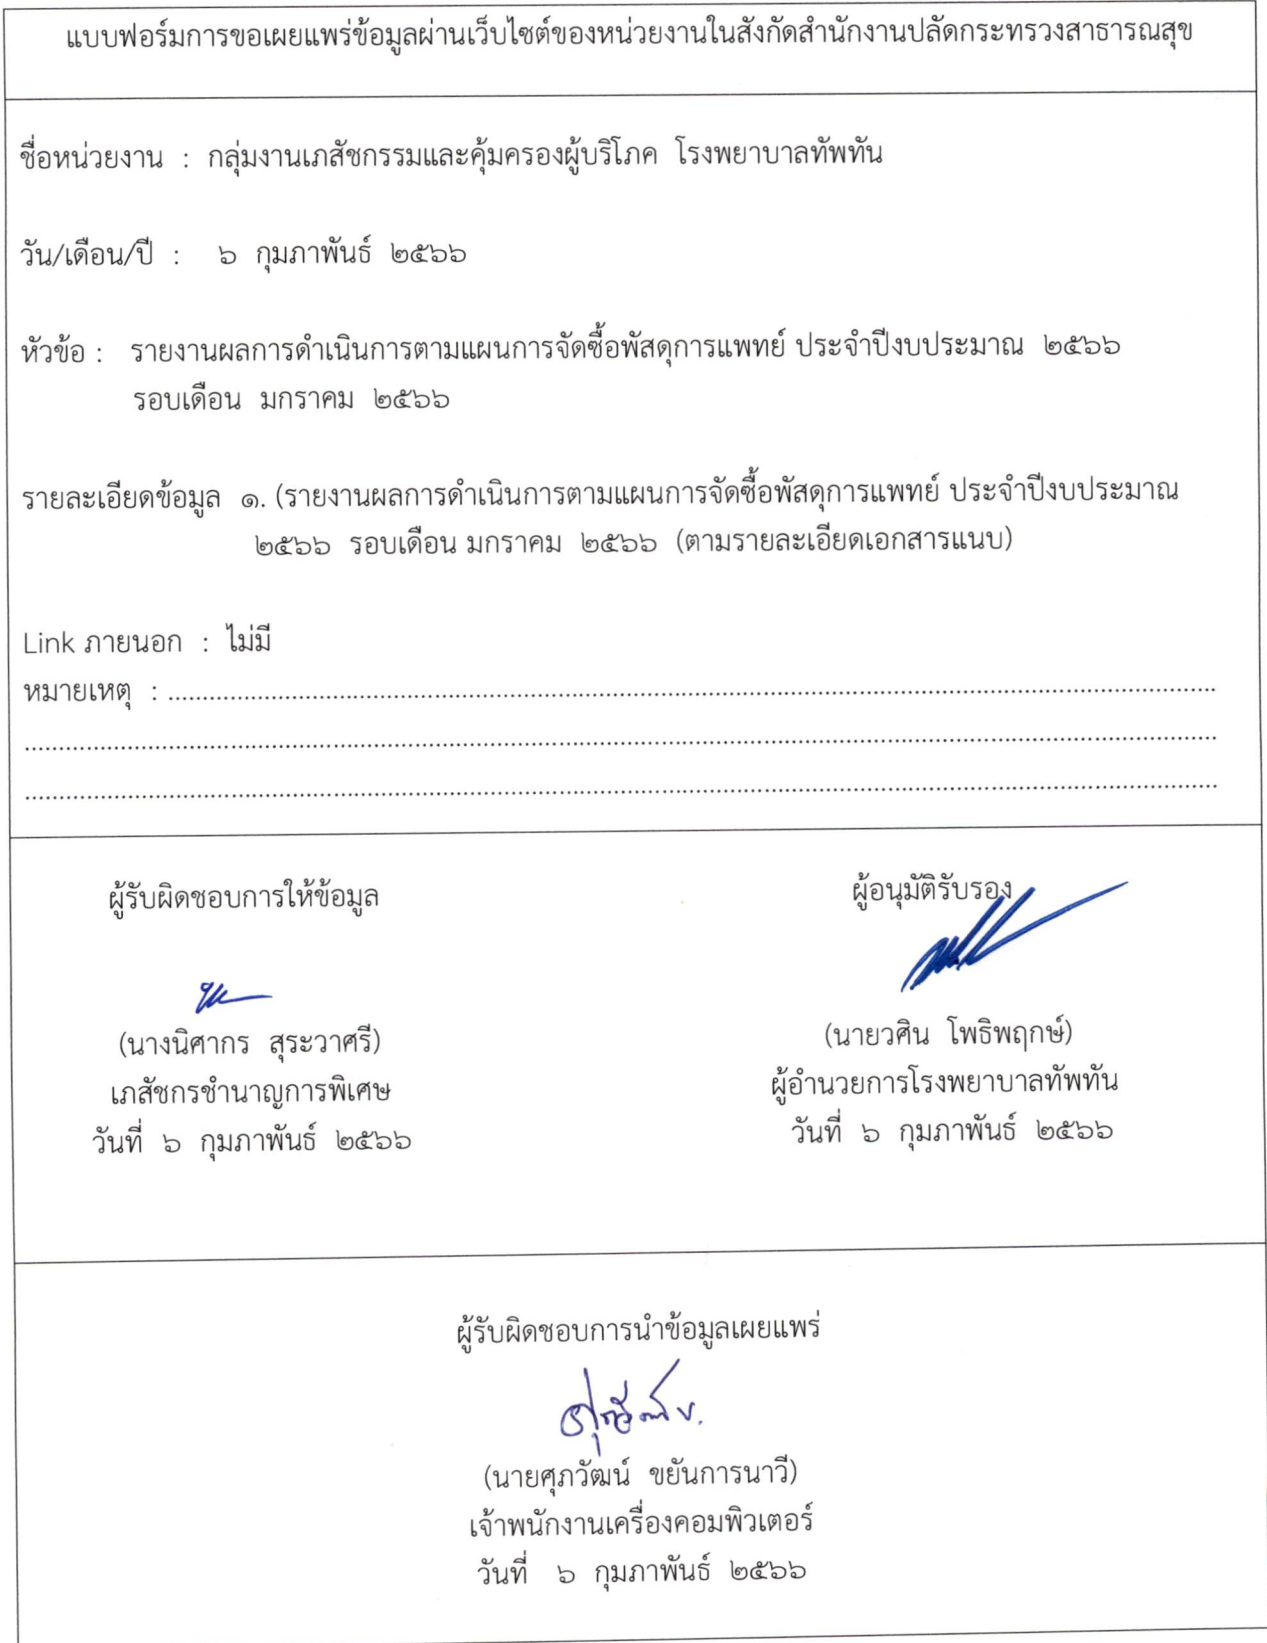 แบบฟอร์มการขอเผยแพร่ข้อมูลผ่านเว็บไซต์ของหน่วยงานในสังกัดสำนักงานปลัดกระทรวงสาธารณสุข
ชื่อหน่วยงาน : กลุ่มงานเภสัชกรรมและคุ้มครองผู้บริโภค โรงพยาบาลทัพทัน
วัน/เดือน/ปี : ๖ กุมภาพันธ์ ๒๕๖๖
หัวข้อ : รายงานผลการดำเนินการตามแผนการจัดซื้อพัสดุการแพทย์ ประจำปีงบประมาณ ๒๕๖๖
รอบเดือน มกราคม ๒๕๖๖
รายละเอียดข้อมูล ๑. (รายงานผลการดำเนินการตามแผนการจัดซื้อพัสดุการแพทย์ ประจำปีงบประมาณ
๒๕๖๖ รอบเดือน มกราคม ๒๕๖๖ (ตามรายละเอียดเอกสารแนบ)
Link ภายนอก : ไม่มี
หมายเหตุ :
ผู้รับผิดชอบการให้ข้อมูล
(นางนิศากร สุระวาศรี)
เภสัชกรชำนาญการพิเศษ
วันที่ ๖ กุมภาพันธ์ ๒๕๖๖
ผู้อนุมัติรับรอง
(นายวศิน โพธิพฤกษ์)
ผู้อำนวยการโรงพยาบาลทัพทัน
วันที่ ๖ กุมภาพันธ์ ๒๕๖๖
ผู้รับผิดชอบการนำข้อมูลเผยแพร่
(นายศุภวัฒน์ ขยันการนาวี)
เจ้าพนักงานเครื่องคอมพิวเตอร์
วันที่ ๖ กุมภาพันธ์ ๒๕๖๖